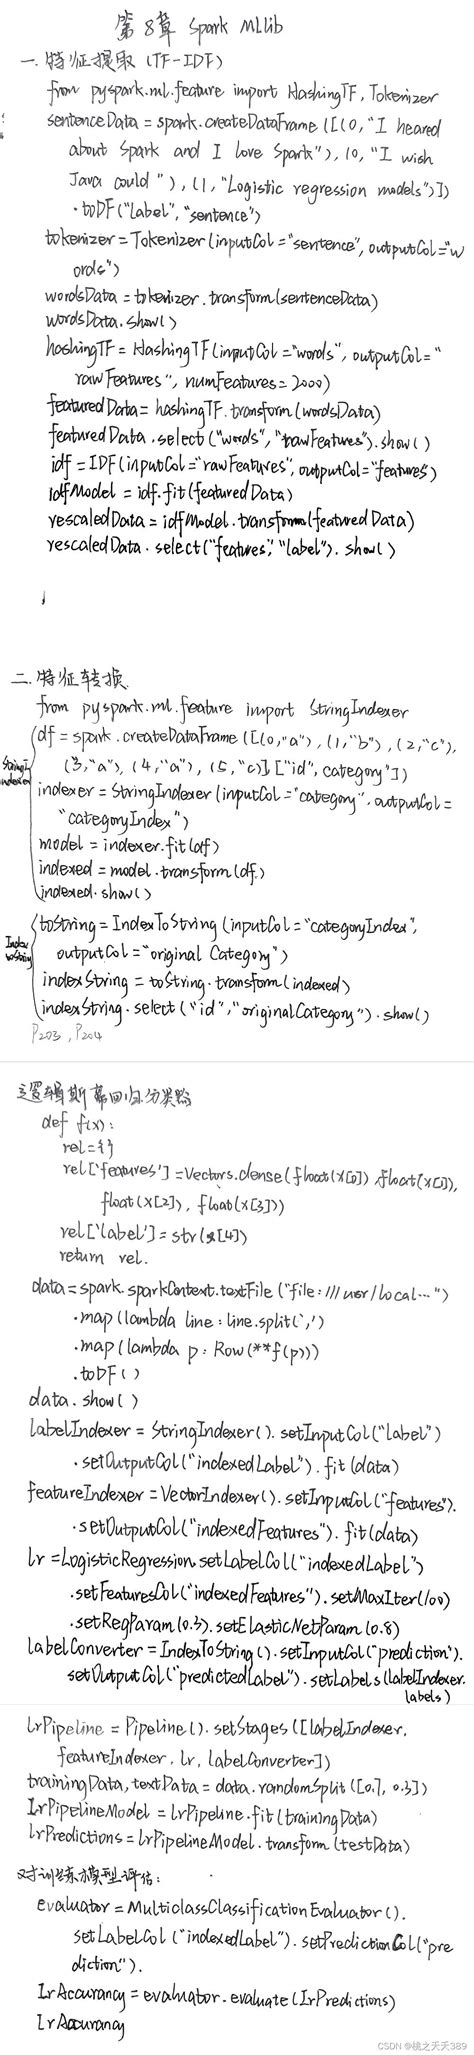 第8章 Spark MLlib
一.特征提取 (TF-IDF)
from pyspark.ml.feature import HashingTF, Tokenizer
sentenceData = spark.createDataFrame([(0,"I heared
about Spark and I love Spark"), (0,"I wish
Java could"), (1,"Logistic regression models")])
.toDF("label","sentence")
tokenizer = Tokenizer(inputCol="sentence", outputCol="w
ords")
wordsData = tokenizer.transform(sentenceData)
wordsData.show()
hashingTF = HashingTF(inputCol="words", outputCol="
rawFeatures", numFeatures=2000)
featuredData = hashingTF.transform(wordsData)
featuredData.select("words","rawFeatures").show()
idf = IDF(inputCol="rawFeatures", outputCol="features")
idfModel = idf.fit(featuredData)
rescaledData = idfModel.transform(featuredData)
rescaledData.select("features","label").show()
二.特征转换
from pyspark.ml.feature import StringIndexer
StringIn
indexer
df = spark.createDataFrame([(0,"a"), (1,"b"), (2,"c"),
(3,"a"), (4,"a"), (5,"c")]["id", category"])
indexer = StringIndexer(inputCol="category", outputCol=
"categoryIndex")
model = indexer.fit(df)
indexed = model.transform(df)
indexed.show()
Index
toString
toString = IndexToString(inputCol="categoryIndex",
outputCol="original Category")
indexString = toString.transform(indexed)
indexString.select("id","originalCategory").show()
P203, P204
逻辑斯蒂回归分类器
def f(x):
rel={}
rel['features']=Vectors.dense(float(x[0]),float(x[1]),
float(x[2]), float(x[3]))
rel['label']=str(x[4])
return rel.
data=spark.sparkContext.textFile("file:///usr/local...")
.map(lambda line: line.split(',')
.map(lambda p: Row(**f(p)))
.toDF()
data.show()
labelIndexer = StringIndexer().setInputCol("label")
.setOutputCol("indexedLabel").fit(data)
featureIndexer = VectorIndexer().setInputCol("features").
.setOutputCol("indexedFeatures").fit(data)
lr = LogisticRegression.setLabelCol("indexedLabel")
.setFeaturesCol("indexedFeatures").setMaxIter(100)
.setRegParam(0.3).setElasticNetParam(0.8)
labelConverter = IndexToString().setInputCol("prediction").
setOutputCol("predictedLabel").setLabels(labelIndexer.
labels)
lrPipeline = Pipeline().setStages([labelIndexer,
featureIndexer, lr, labelConverter])
trainingData, textData = data.randomSplit([0.7, 0.3])
lrPipelineModel = lrPipeline.fit(trainingData)
lrPredictions = lrPipelineModel.transform(testData)
对训练模型评估:
evaluator = MulticlassClassificationEvaluator().
setLabelCol("indexedLabel").setPredictionCol("pre
diction").
lrAccurancy = evaluator.evaluate(lrPredictions)
lrAccurancy
CSDN @桃之夭夭389